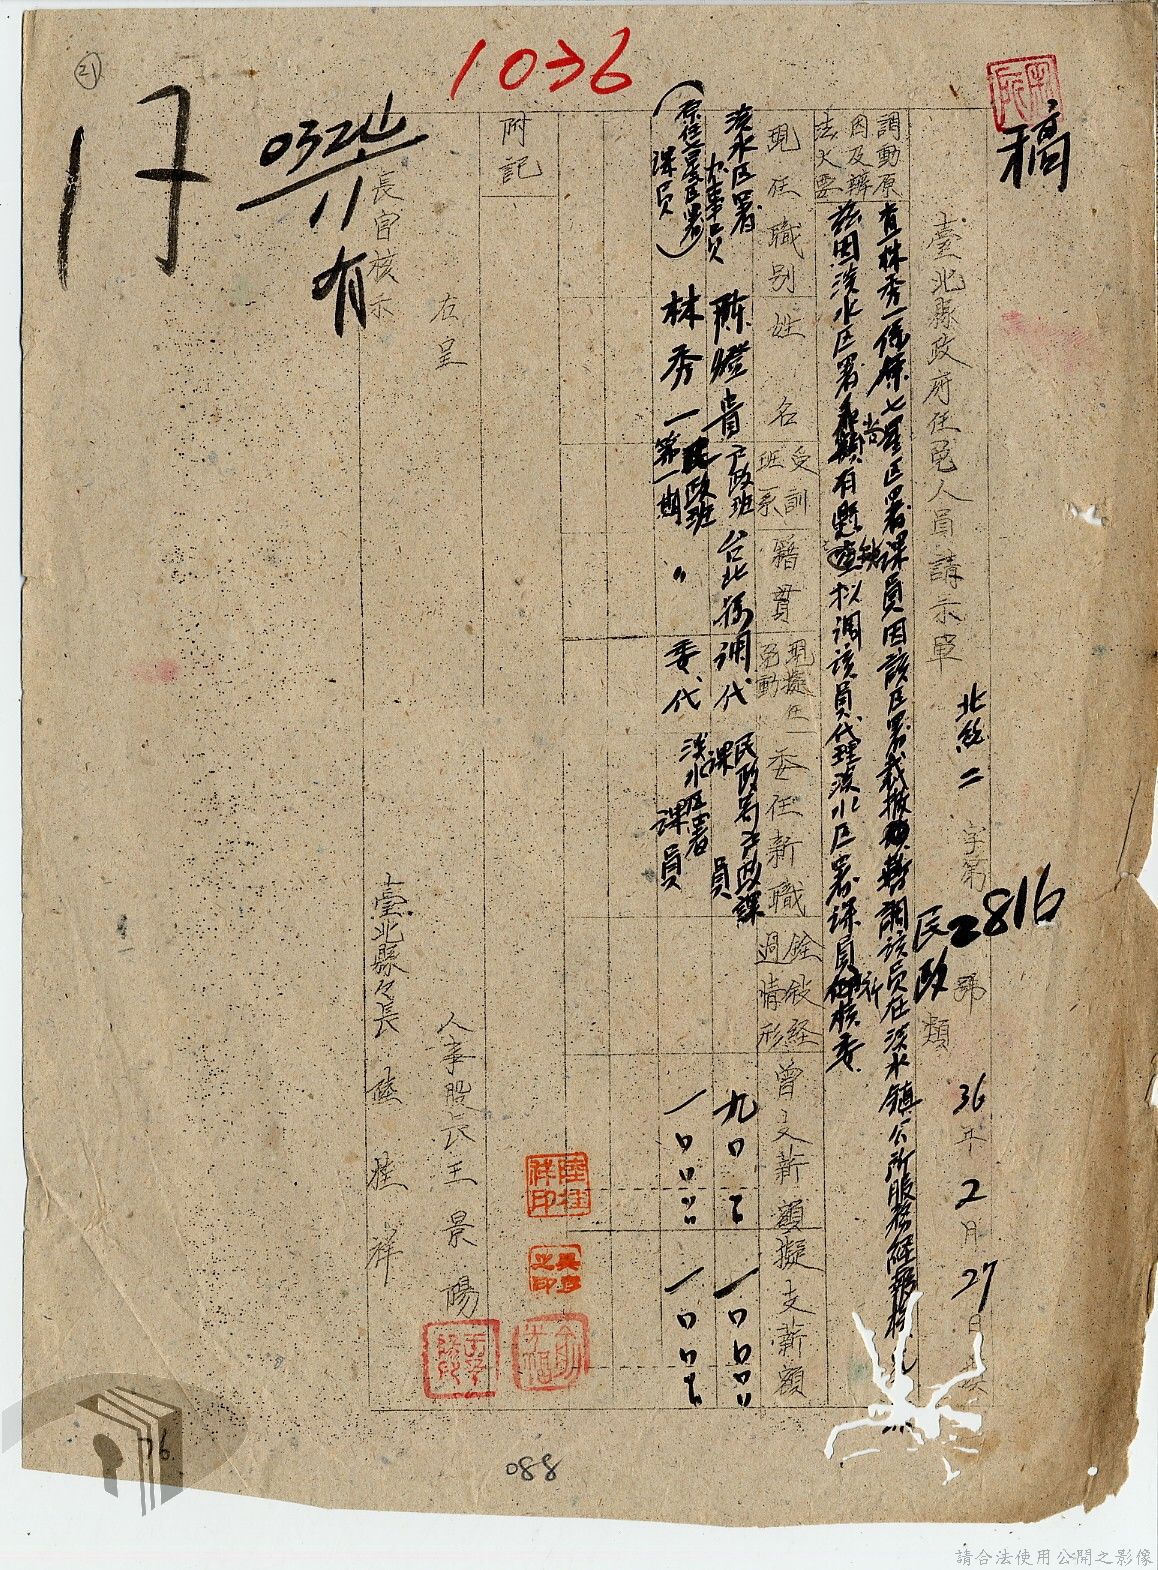 1036
21
稿
臺北縣政府任免人員請示單 北 二 字第2816號 民政類 36年2月27日
調動原因及辦法大要
查林秀一係原七星區署課員因該區署裁撤暫調該員在淡水鎮公所服務經報
茲因淡水區署尚有懸缺擬調該員代理淡水區署課員祈核委
現任職別 姓名 受訓班系 籍貫 現擬任免動 委任新職 銓敘經過情形 曾支薪額 擬支薪額
淡水區署办事員 陳燈貴 户政班 台北縣 調代 民政局户政課課員 九〇 一〇〇
(原任七星區署課員) 林秀一 民政班第一期 〃 委代 淡水區署課員 一〇〇 一〇〇
附記
右呈
人事股長王景陽
長官核示
臺北縣々長 陸桂祥
陸桂祥印
0324
11
有
17
76.
088
請合法使用公開之影像